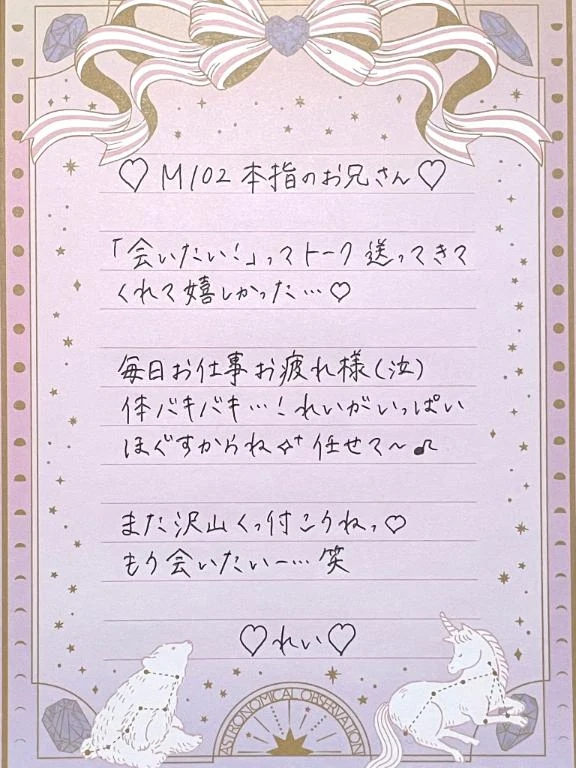 ♡M102本指のお兄さん♡
「会いたい!」ってトーク送ってきて
くれて嬉しかった…♡
毎日お仕事お疲れ様(泣)
体バキバキ…!れいがいっぱい
ほぐすからね✧⁺任せて〜♫
また沢山くっ付こうねっ♡
もう会いたいー…笑
♡れい♡
ASTRONOMICAL OBSERVATION